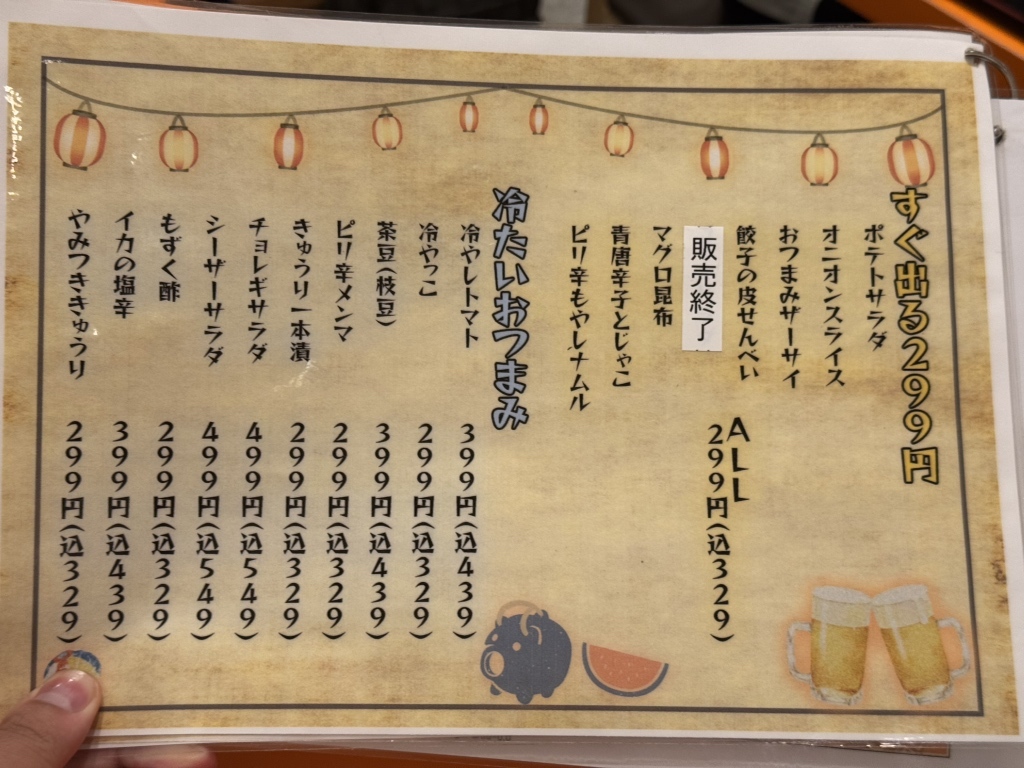 すぐ出る299円
ポテトサラダ
オニオンスライス
おつまみザーサイ
餃子の皮せんべい
ALL
299円(込329)
販売終了
マグロ昆布
青唐辛子とじゃこ
ピリ辛もやしナムル
冷たいおつまみ
冷やしトマト 399円(込439)
冷やっこ 299円(込329)
茶豆(枝豆) 399円(込439)
ピリ辛メンマ 299円(込329)
きゅうり一本漬 299円(込329)
チョレギサラダ 499円(込549)
シーザーサラダ 499円(込549)
もずく酢 299円(込329)
イカの塩辛 399円(込439)
やみつききゅうり 299円(込329)